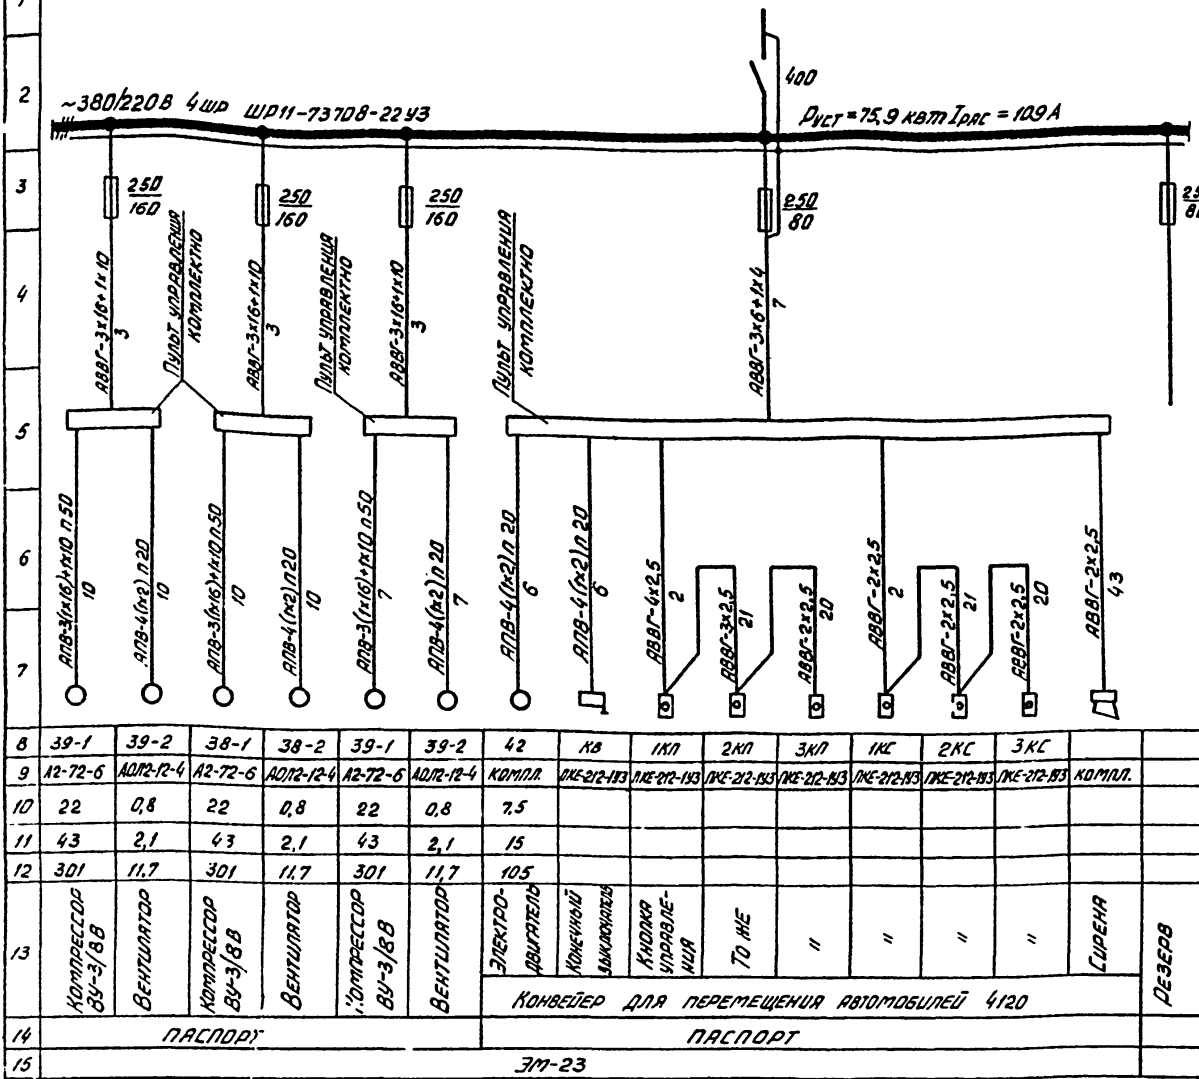 1
2
3
4
5
6
7
~380/220В 4ШР ШР11-73708-22У3
400
Руст=75,9 кВт Iрас=109А
250
160
250
160
250
160
250
80
АВВГ-3х16+1х10
3
ПУЛЬТ УПРАВЛЕНИЯ
КОМПЛЕКТНО
АВВГ-3х16+1х10
3
ПУЛЬТ УПРАВЛЕНИЯ
КОМПЛЕКТНО
АВВГ-3х16+1х10
3
ПУЛЬТ УПРАВЛЕНИЯ
КОМПЛЕКТНО
АВВГ-3х6+1х4
7
АПВ-3(1х16)+1х10 п50
10
АПВ-4(1х2) п20
10
АПВ-3(1х16)+1х10 п50
10
АПВ-4(1х2) п20
10
АПВ-3(1х16)+1х10 п50
7
АПВ-4(1х2) п20
7
АПВ-4(1х2) п20
6
АПВ-4(1х2) п20
6
АВВГ-4х2,5
2
АВВГ-3х2,5
21
АВВГ-2х2,5
20
АВВГ-2х2,5
2
АВВГ-2х2,5
21
АВВГ-2х2,5
20
АВВГ-2х2,5
43
8 39-1 39-2 38-1 38-2 39-1 39-2 42 КВ 1КП 2КП 3КП 1КС 2КС 3КС
9 А2-72-6 АОЛ2-12-4 А2-72-6 АОЛ2-12-4 А2-72-6 АОЛ2-12-4 КОМПЛ. ПКЕ-212-1У3 ПКЕ-212-1У3 ПКЕ-212-1У3 ПКЕ-212-1У3 ПКЕ-212-1У3 ПКЕ-212-1У3 ПКЕ-212-1У3 КОМПЛ.
10 22 0,8 22 0,8 22 0,8 7,5
11 43 2,1 43 2,1 43 2,1 15
12 301 11,7 301 11,7 301 11,7 105
13
КОМПРЕССОР
ВУ-3/8В
ВЕНТИЛЯТОР
КОМПРЕССОР
ВУ-3/8В
ВЕНТИЛЯТОР
КОМПРЕССОР
ВУ-3/8В
ВЕНТИЛЯТОР
ЭЛЕКТРО-
ДВИГАТЕЛЬ
КОНЕЧНЫЙ
ВЫКЛЮЧАТЕЛЬ
КНОПКА
УПРАВЛЕ-
НИЯ
ТО ЖЕ
" " " "
СИРЕНА
РЕЗЕРВ
КОНВЕЙЕР ДЛЯ ПЕРЕМЕЩЕНИЯ АВТОМОБИЛЕЙ 4120
14 ПАСПОРТ ПАСПОРТ
15 ЭМ-23